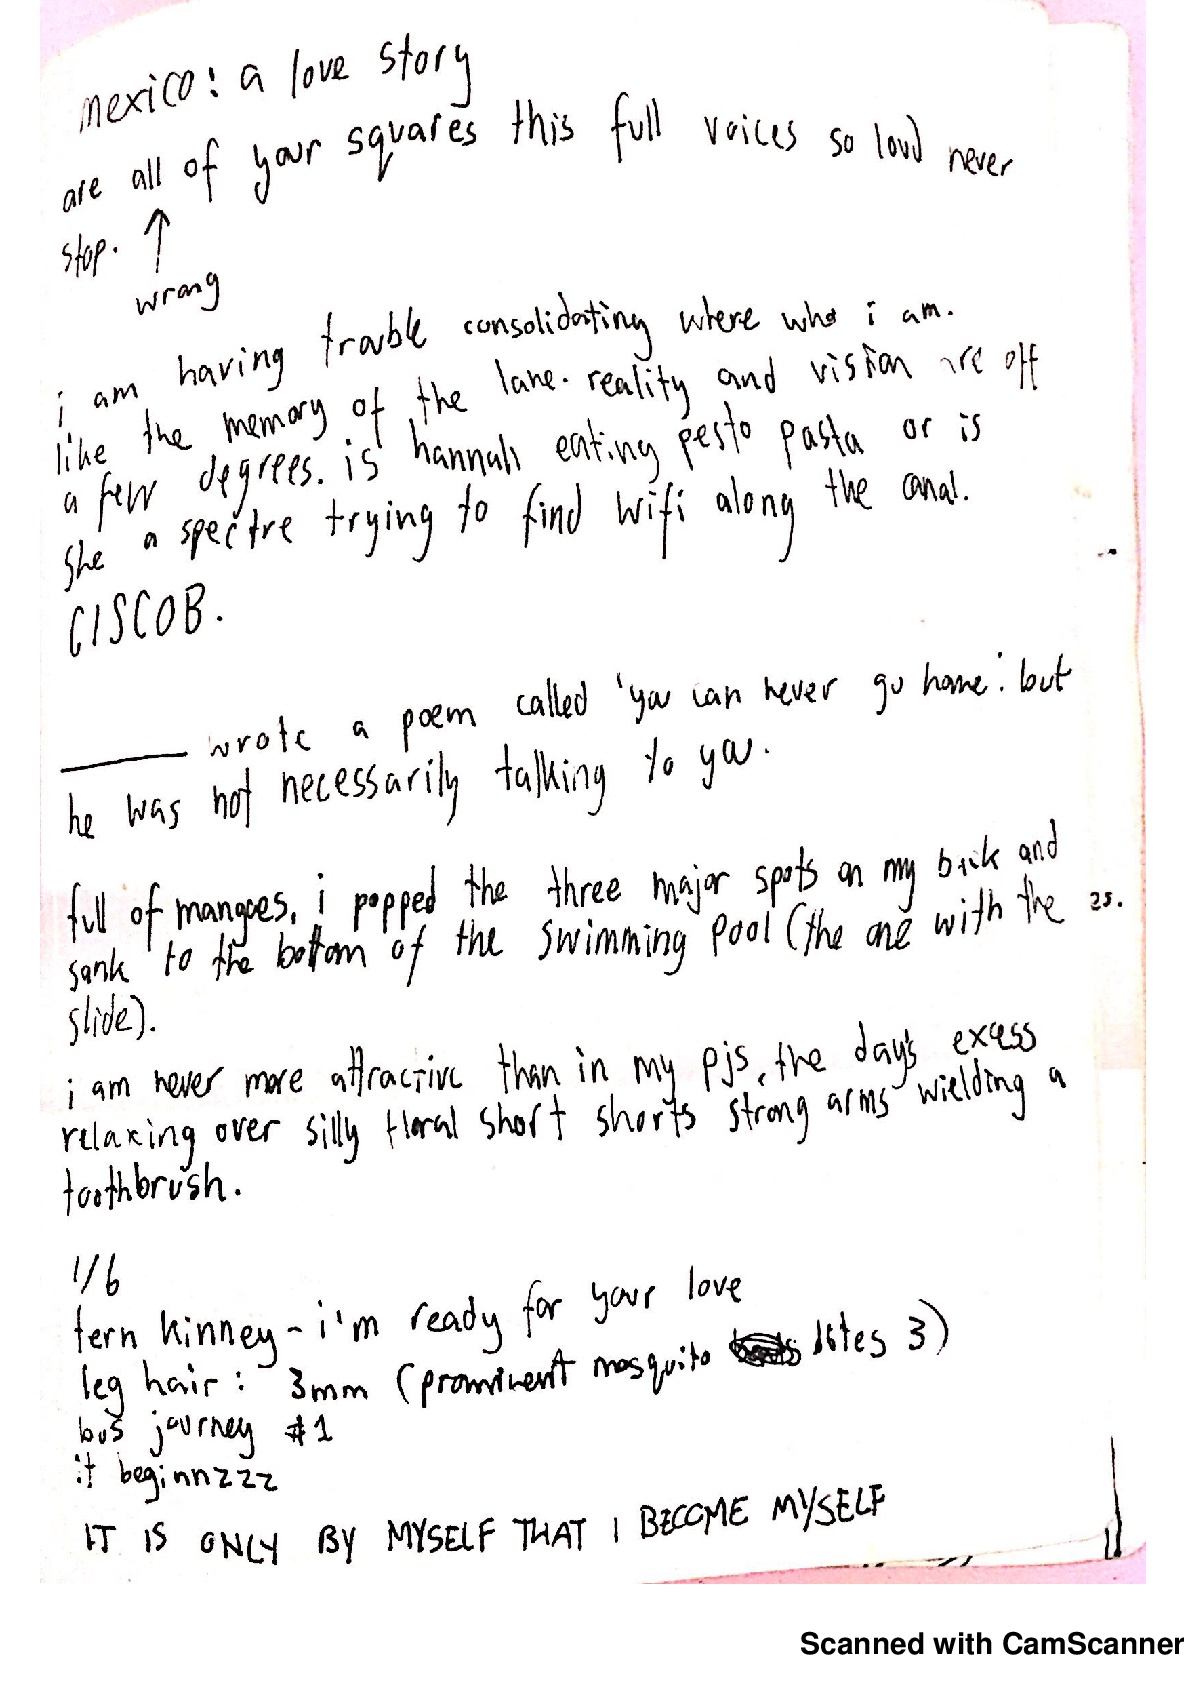 mexico: a love story
are all of your squares this full voices so loud never
stop. ↑
wrong
i am having trouble consolidating where who i am.
like the memory of the lane. reality and vision are off
a few degrees. is hannah eating pesto pasta or is
she a spectre trying to find wifi along the canal.
CISCOB.
______ wrote a poem called 'you can never go home'. but
he was not necessarily talking to you.
full of mangoes, i popped the three major spots on my back and
sank to the bottom of the swimming pool (the one with the 25.
slide).
i am never more attractive than in my pjs, the day's excess
relaxing over silly floral short shorts strong arms wielding a
toothbrush.
1/6
fern kinney - i'm ready for your love
leg hair: 3mm (prominent mosquito bites 3)
bus journey #1
it beginnzzz
IT IS ONLY BY MYSELF THAT I BECOME MYSELF
Scanned with CamScanner